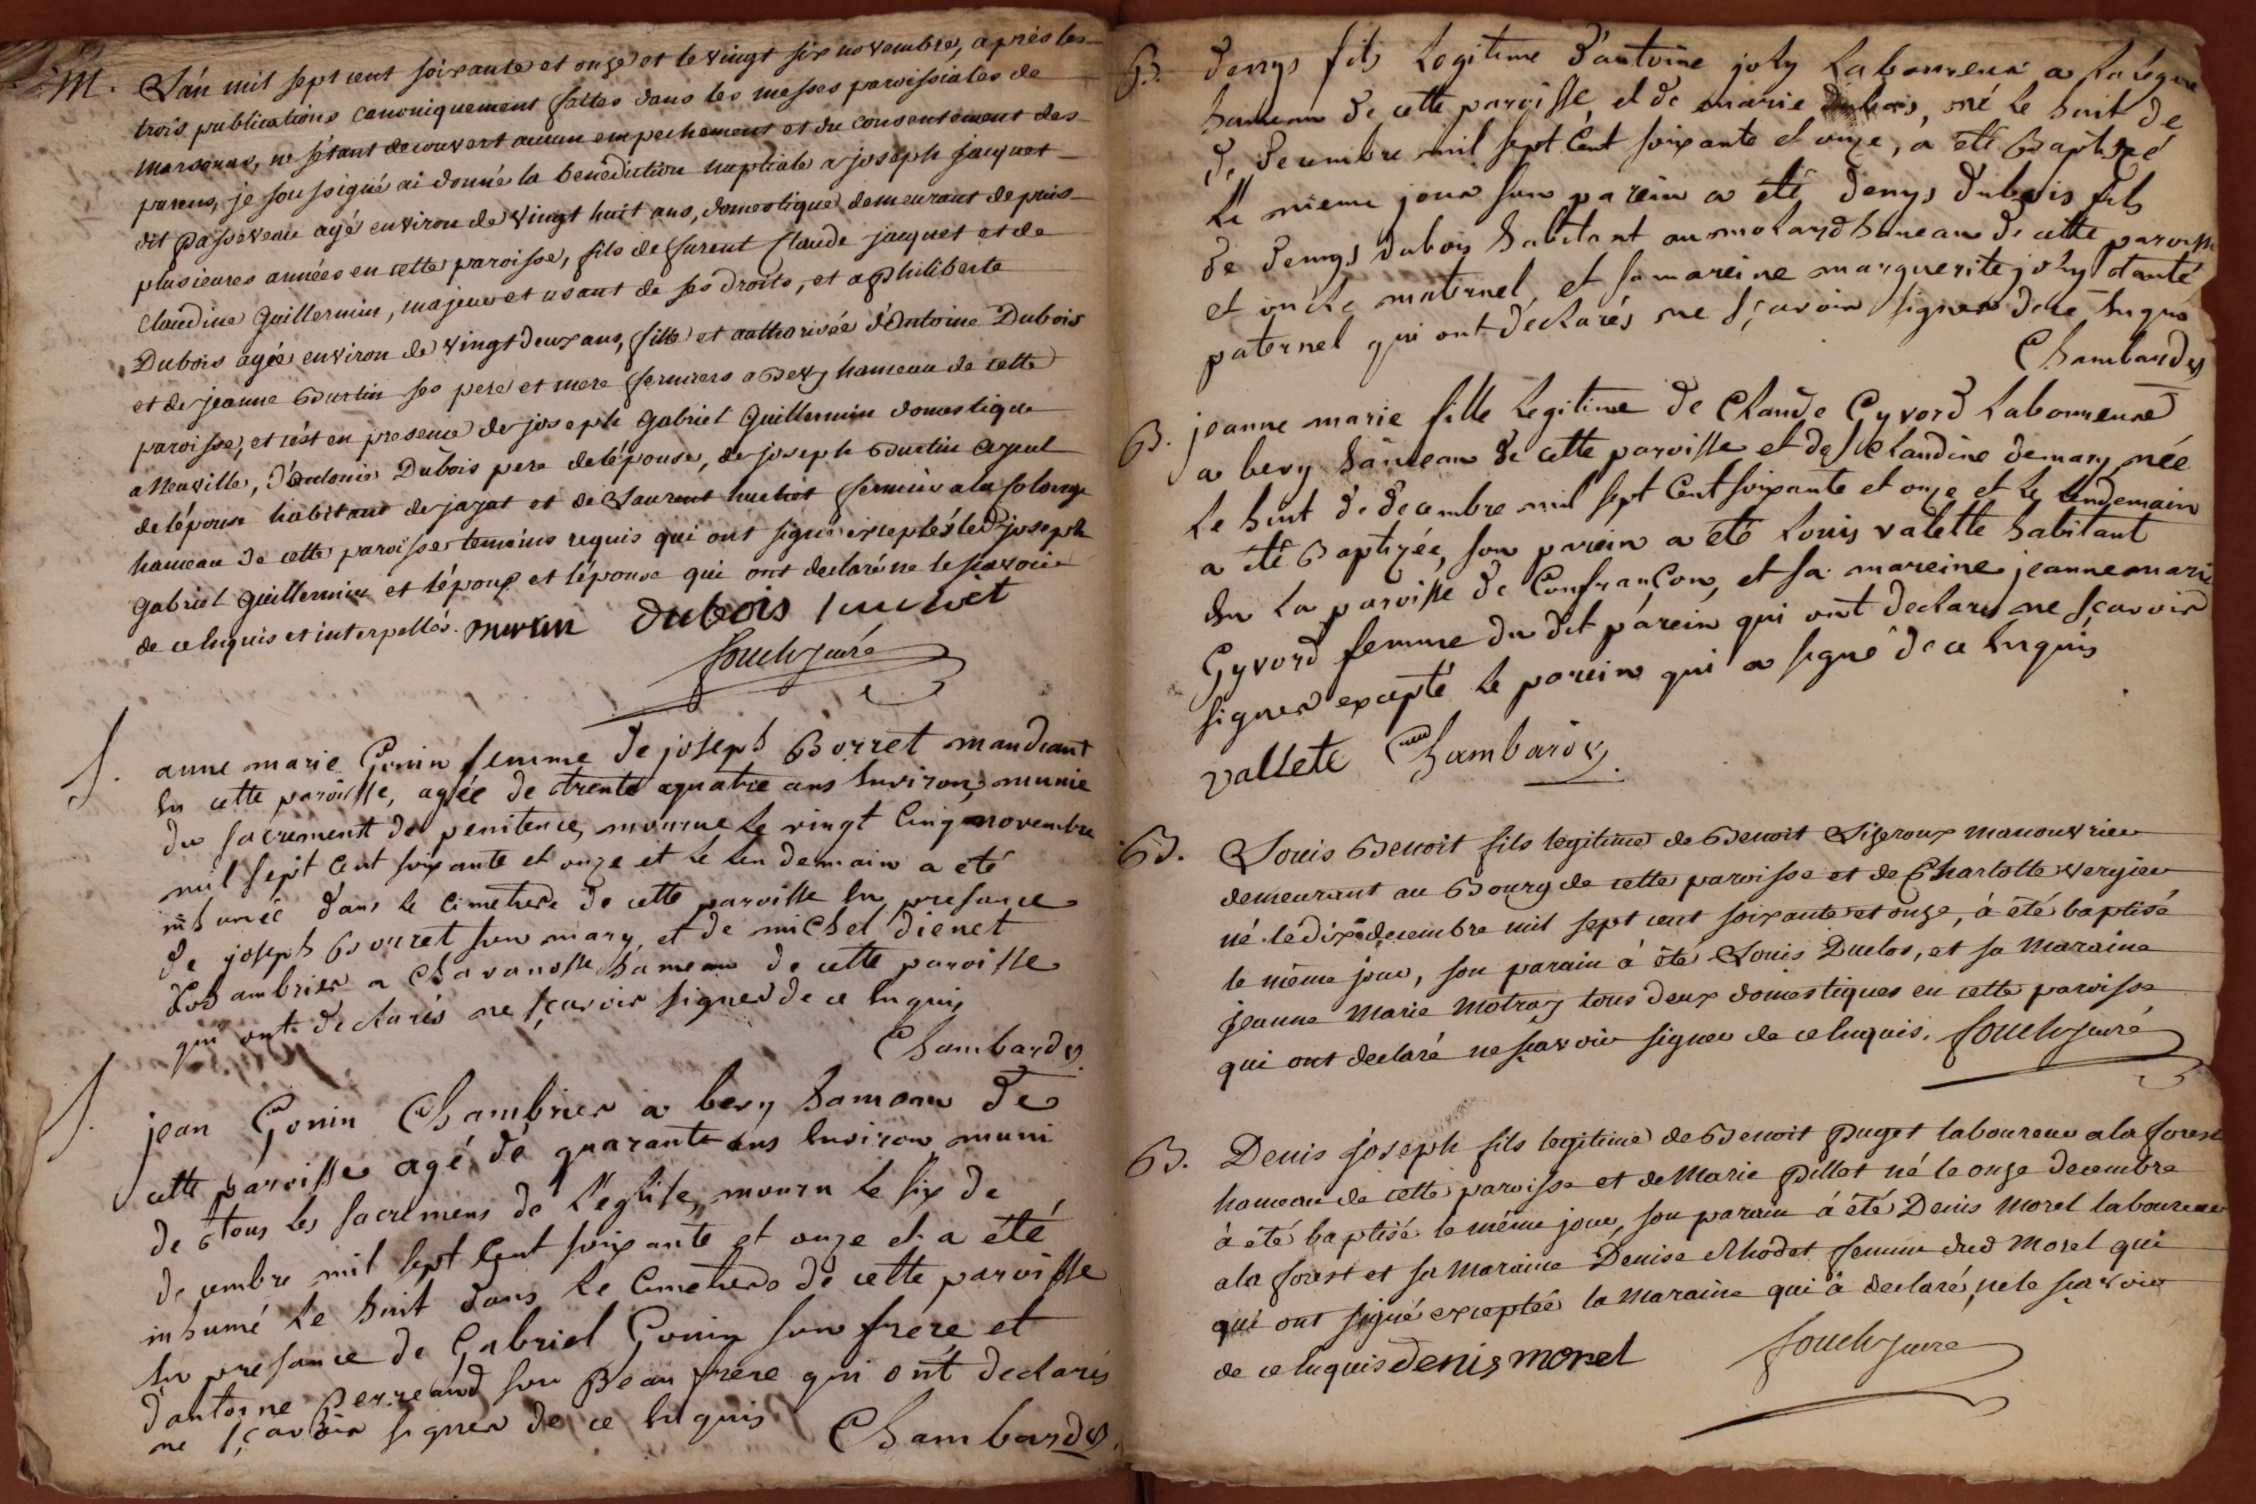 M. L'an mil sept cent soixante et onze et le vingt six novembre, après les
trois publications canoniquement faittes dans les messes paroissiales de
Marsonas, ne s'étant decouvert aucun empechement et du consentement des
parens, je soussigné ai donné la benediction nuptiale a joseph jacquet
dit passeveau agé environ de vingt huit ans, domestique demeurant depuis
plusieures années en cette paroisse, fils de furent Claude jacquet et de
Claudine Guillermin, majeur et usant de ses droits, et a philiberte
Dubois agée environ de vingt deux ans, fille et authorisée d'Antoine Dubois
et de jeanne Burtin ses pere et mere fermiers a Bevy hameau de cette
paroisse, et c'est en presence de joseph Gabriel Guillermin domestique
a Neuville, d'Antoine Dubois pere de l'épouse, de joseph Burtin ayeul
de l'épouse habitant de jayat et de Laurent huchet fermier a la
hameau de cette paroisse temoins requis qui ont signé exceptés led. joseph
Gabriel Guillermin et l'époux et l'épouse qui ont declaré ne le sçavoir
de ce enquis et interpellés. Dubois huchet
curé
S. anne marie Gonin femme de joseph Borret mandiant
en cette paroisse, agée de trente quatre ans environ, munie
du sacrement de penitence, mourue le vingt cinq novembre
mil sept cent soixante et onze et le lendemain a été
inhumée dans le cimetiere de cette paroisse en presance
de joseph Bouret son mary, et de michel dienet
chambrier a Chavanosse hameau de cette paroisse
qui ont déclarés ne sçavoir signer de ce enquis
Chambard
S. jean Gonin Chambrier a bevy hameau de
cette paroisse agé de quarante ans environ muni
de tous les sacremens de l'eglise, mouru le six de
decembre mil sept cent soixante et onze et a été
inhumé le huit dans le cimetiere de cette paroisse
en presance de Gabriel Gonin son frere et
d'antoine perreaud son Beau frere qui ont declarés
ne sçavoir signer de ce enquis Chambard
B. denys fils legitime d'antoine joly laboureur a
hameau de cette paroisse, et de marie dubois, né le huit de
de decembre mil sept cent soixante et onze, a été Baptisé
le mieme jour son parein a été denys dubois fils
de denys dubois habitant au molard hameau de cette paroisse
et oncle maternel et sa mareine marguerite joly tante
paternel qui ont déclarés ne sçavoir signer de ce enquis
Chambard
B. jeanne marie fille legitime de Claude Cyvord laboureur
a bevy hameau de cette paroisse et de Claudine demary née
le huit de decembre mil sept cent soixante et onze et le lendemain
a été Baptizée, son parein a été louis valette habitant
en la paroisse de Confrançon, et sa mareine jeanne marie
Cyvord femme du dit parein qui ont declaré ne sçavoir
signer excepté le parein qui a signé de ce enquis
vallete Chambard
B. Louis Benoit fils legitime de Benoit manouvrier
demeurant au Bourg de cette paroisse et de Charlotte vergier
né le dix decembre mil sept cent soixante et onze, à été baptisé
le même jour, son parain à été Louis Duclos, et sa maraine
jeanne marie motray tous deux domestiques en cette paroisse
qui ont declaré ne sçavoir signer de ce enquis. curé
B. Denis joseph fils legitime de Benoit puget laboureur a la forest
hameau de cette paroisse et de Marie pillot né le onze decembre
à été baptisé le même jour, son parain à été Denis Morel laboureur
a la forest et sa maraine Denise Rhodet femme dud Morel qui
qui ont signé exceptée la maraine qui à declaré ne le sçavoir
de ce enquis denis morel curé